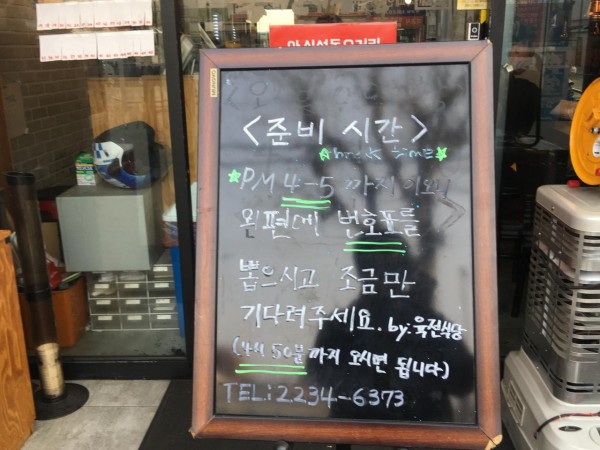 <준비 시간>
break time
PM 4-5 까지 이오니
왼편에 번호표를
뽑으시고 조금만
기다려주세요. by. 육전식당
(4시 50분까지 오시면 됩니다)
TEL: 2234-6373